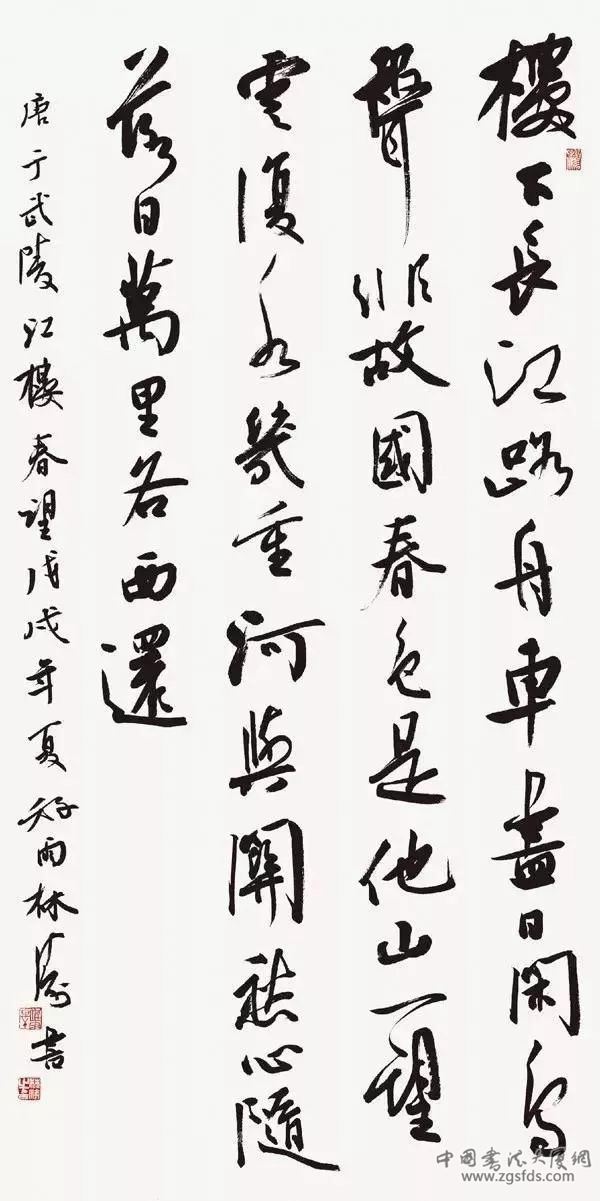 樓下長江路舟車盡日閑鳥
聲非故國春色是他山一望
雲復水幾重河與關愁心隨
落日萬里各西還
唐于武陵江樓春望戊戌年夏好雨林書
中國書法大廈網
www.zgsfds.com